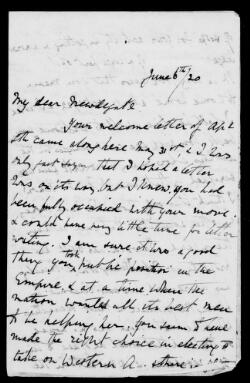 June 6th/20
My dear Newdegate
Your welcome letter of Ap 2
4th came along here May 31st & I was
only just saying that I hoped a letter
was on its way, but I knew you had
been fully occupied with your move
& could have very little time for letter
writing. I am sure it was a good
thing you took but be position in the
Empire, & at a time when the
nation wants all its best men
to be helping her. You seem to have
made the right choice in electing to
take on Western A. there is